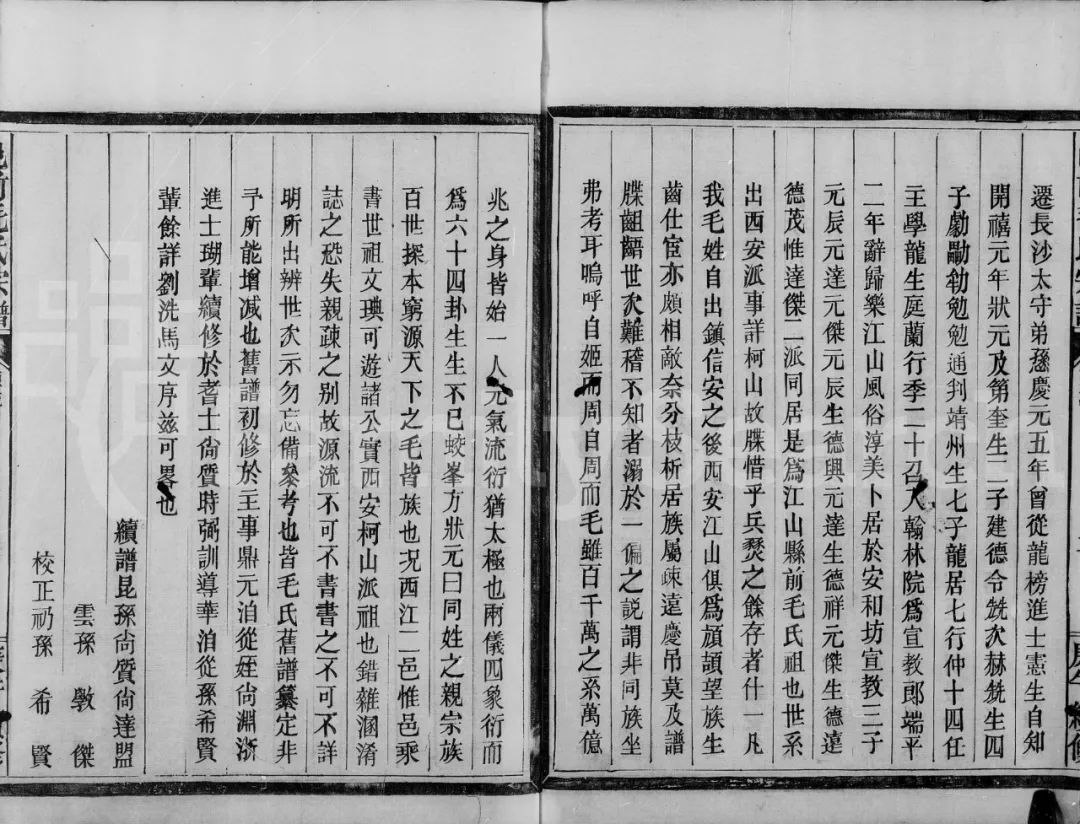 遷長沙太守弟愻慶元五年曾從龍榜進士憲生自知
開禧元年狀元及第奎生二子建德令兟次赫兟生四
子勮勵勒勉勉通判靖州生七子龍居七行仲十四任
主學龍生庭蘭行季二十召入翰林院爲宣教郎端平
二年辭歸樂江山風俗淳美卜居於安和坊宣教三子
元辰元達元傑元辰生德興元達生德祥元傑生德遠
德茂惟達傑二派同居是爲江山縣前毛氏祖也世系
出西安派事詳柯山故牒惜乎兵燹之餘存者什一凡
我毛姓自出鎮信安之後西安江山俱爲頎頡望族生
齒仕宦亦頗相敵奈分枝析居族屬疎遠慶吊莫及譜
牒齟齬世次難稽不知者溺於一偏之說謂非同族坐
弗考耳嗚呼自姬而周自周而毛雖百千萬之系萬億
兆之身皆始一人元氣流衍猶太極也兩儀四象衍而
爲六十四卦生生不已蛟峯方狀元曰同姓之親宗族
百世探本窮源天下之毛皆族也况西江二邑惟邑乘
書世祖文璵可遊諸公實西安柯山派祖也錯雜溷淆
誌之恐失親疎之别故源流不可不書書之不可不詳
明所出辨世次示勿忘備參考也皆毛氏舊譜纂定非
予所能增减也舊譜初修於主事鼎元洎從姪尙淵浙
進士瑚輩續修於耆士尙質時弼訓導華洎從孫希賢
輩餘詳劉洗馬文序兹可畧也
續譜昆孫尙質尙達盟
雲孫 斆 傑
校正礽孫 希 賢
毛氏宗譜